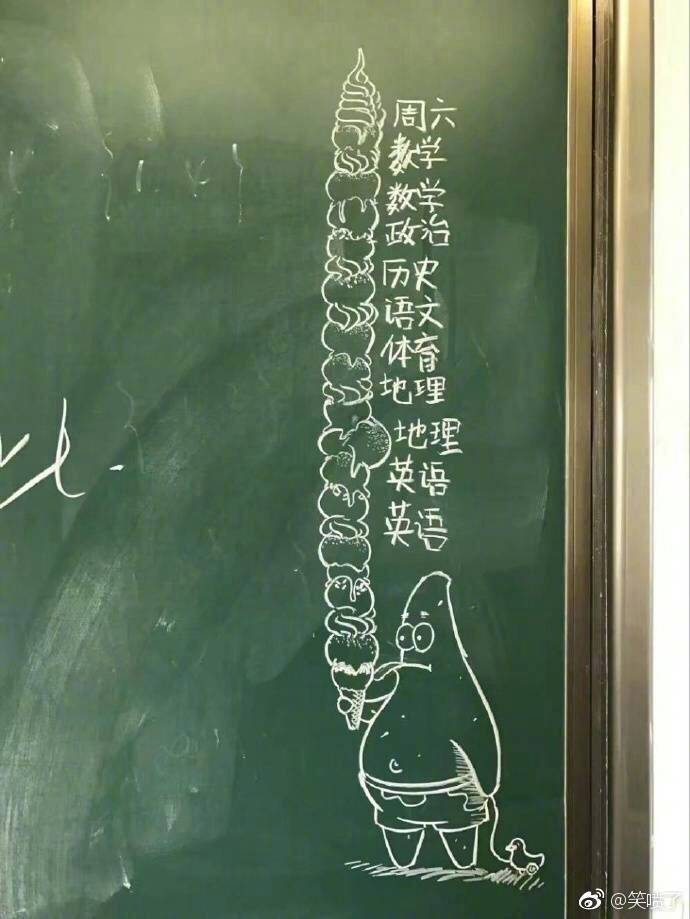 周六
数学
数学
政治
历史
语文
体育
地理
地理
英语
英语
@笑喷了